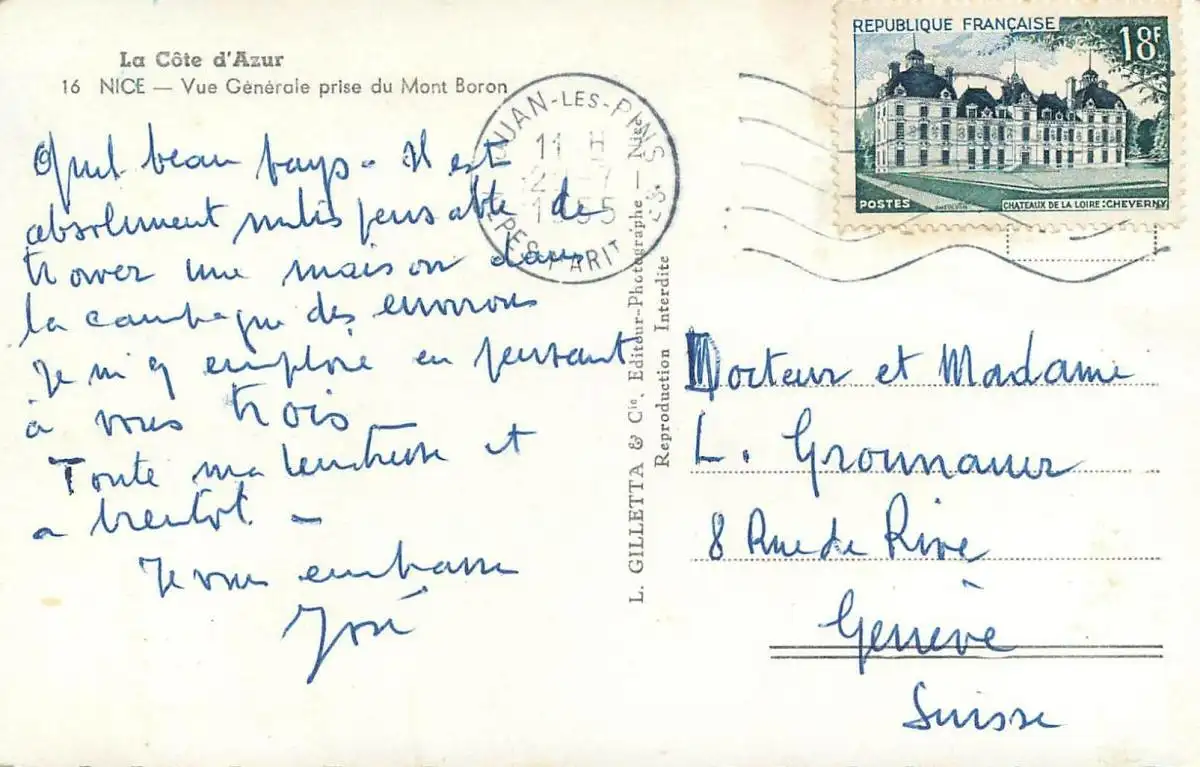 La Côte d'Azur
16 NICE — Vue Générale prise du Mont Boron
Quel beau pays - Il est
absolument indispensable de
trouver une maison dans
la campagne des environs
Je m'y emploie en pensant
à vous trois
Toute ma tendresse et
a bientot -
Je vous embrasse
José
L. GILLETTA & Cie, Editeur-Photographe — Nice
Reproduction Interdite
JUAN-LES-PINS
11 H
ALPES MARIT
REPUBLIQUE FRANÇAISE
18F
POSTES
CHATEAUX DE LA LOIRE: CHEVERNY
Docteur et Madame
L.
8 Rue de Rive
Genève
Suisse